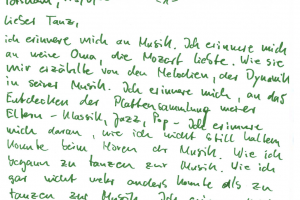 Lieber Tanz,
ich erinnere mich an Musik. Ich erinnere mich
an meine Oma, die Mozart liebte. Wie sie
mir erzählte von den Melodien, der Dynamik
in seiner Musik. Ich erinnere mich, an das
Entdecken der Plattensammlung meiner
Eltern - Klassik, Jazz, Pop - Ich erinnere
mich daran, wie ich nicht still halten
konnte beim Hören der Musik. Wie ich
begann zu tanzen zur Musik. Wie ich
gar nicht mehr anders konnte als zu
tanzen zur Musik. Ich erinnere